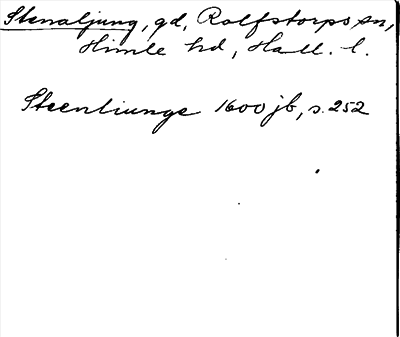 Stenaljung, gd, Rolfstorps sn,
Himle hd, Hall. l.
Steenliunge 1600 jb, s. 252